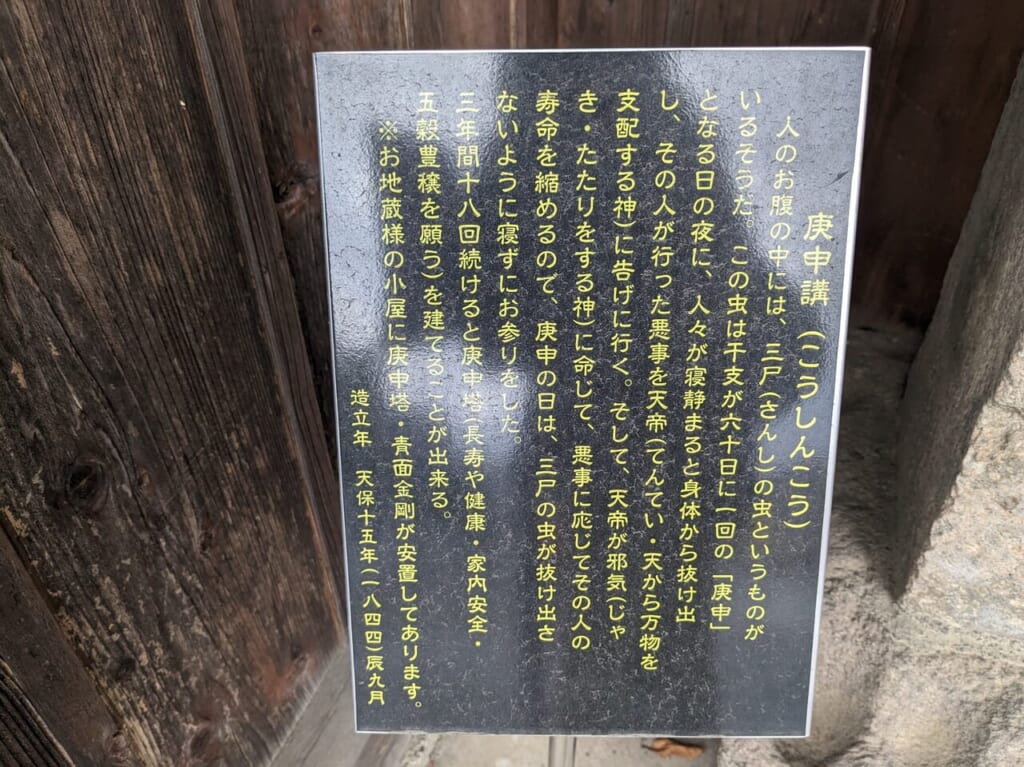 庚申講(こうしんこう)
人のお腹の中には、三尸(さんし)の虫というものが
いるそうだ。この虫は干支が六十日に一回の「庚申」
となる日の夜に、人々が寝静まると身体から抜け出
し、その人が行った悪事を天帝(てんてい・天から万物を
支配する神)に告げに行く。そして、天帝が邪気(じゃ
き・たたりをする神)に命じて、悪事に応じてその人の
寿命を縮めるので、庚申の日は、三尸の虫が抜け出さ
ないように寝ずにお参りをした。
三年間十八回続けると庚申塔(長寿や健康・家内安全・
五穀豊穣を願う)を建てることが出来る。
※お地蔵様の小屋に庚申塔・青面金剛が安置してあります。
造立年 天保十五年(一八四四)辰九月